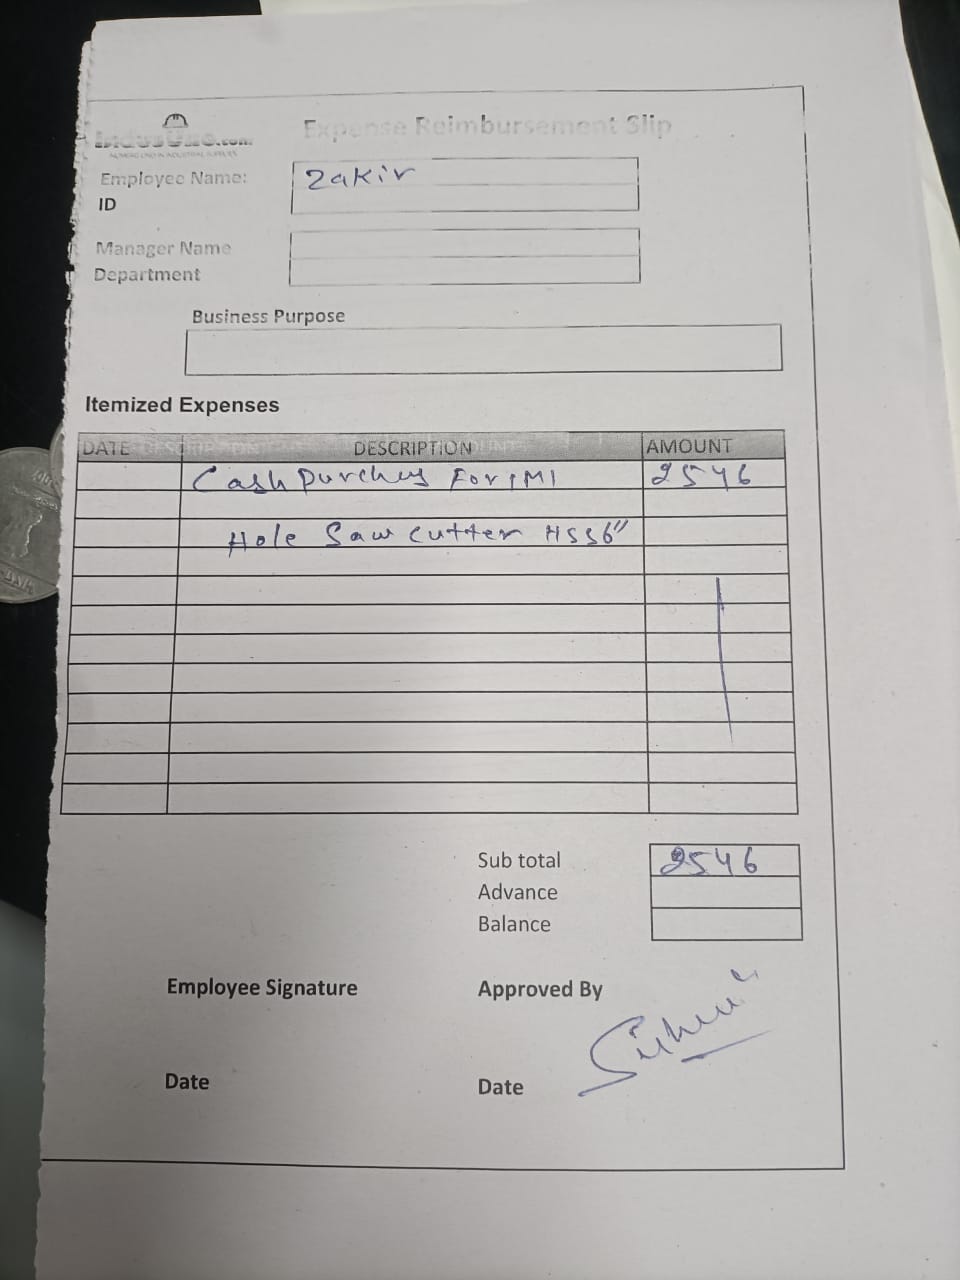 IndusUno.com
NUMERO UNO IN INDUSTRIAL SUPPLIES
Expense Reimbursement Slip
Employee Name: Zakir
ID
Manager Name
Department
Business Purpose
Itemized Expenses
DATE DESCRIPTION AMOUNT
Cash Purches For PMI 2546
Hole Saw cutter HSS 6"
Sub total 2546
Advance
Balance
Employee Signature Approved By
Date Date